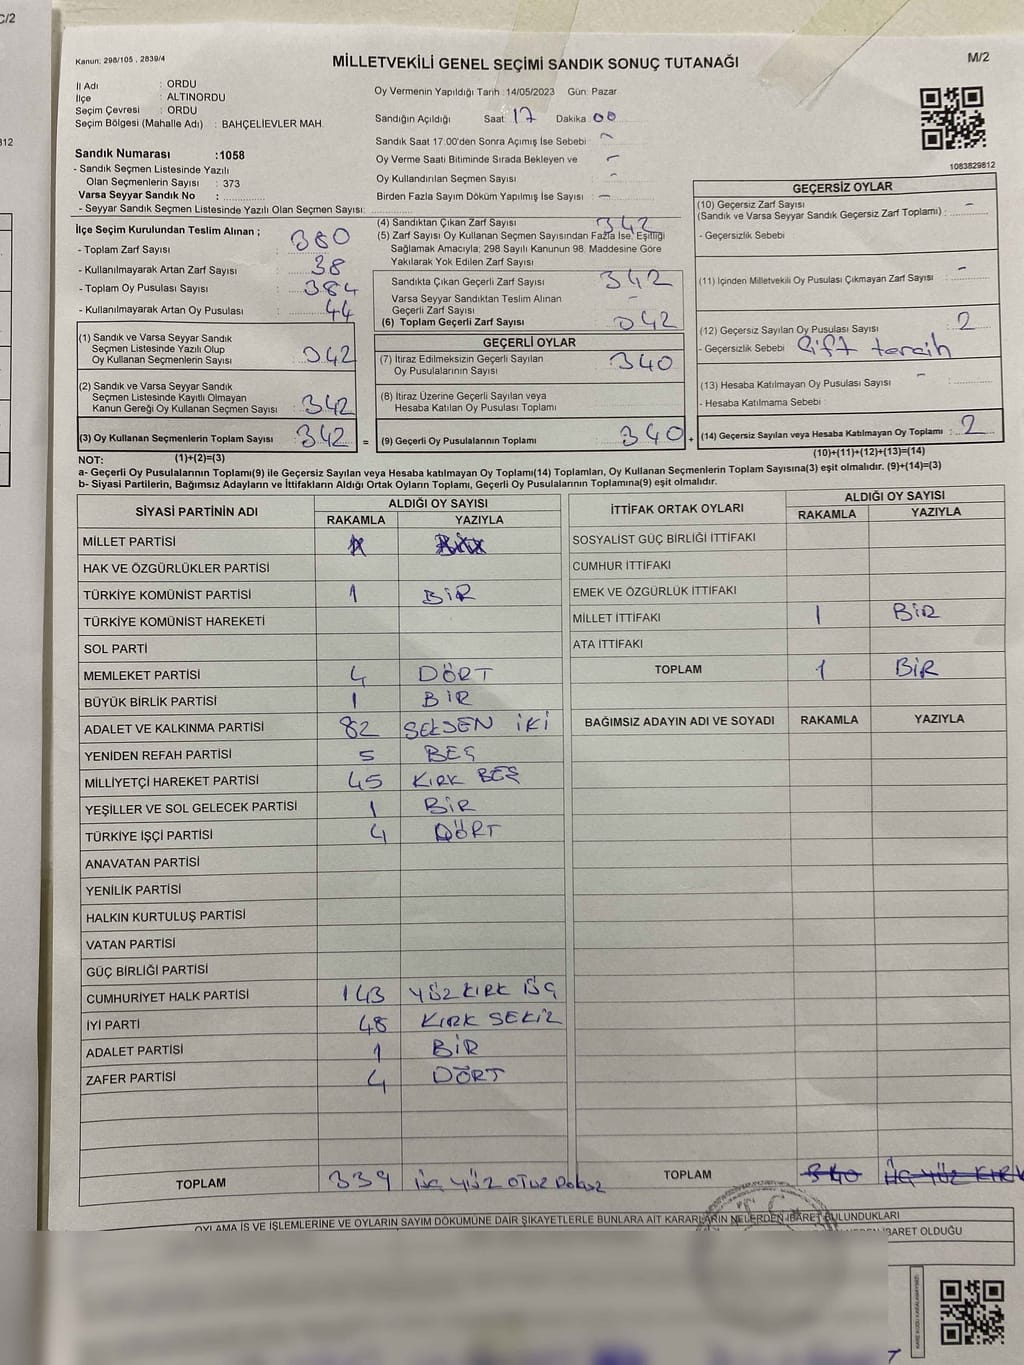 C/2
812
Kanun: 298/105 , 2839/4
MİLLETVEKİLİ GENEL SEÇİMİ SANDIK SONUÇ TUTANAĞI
M/2
İl Adı : ORDU
İlçe : ALTINORDU
Seçim Çevresi : ORDU
Seçim Bölgesi (Mahalle Adı) : BAHÇELİEVLER MAH.
Sandık Numarası :1058
- Sandık Seçmen Listesinde Yazılı
Olan Seçmenlerin Sayısı : 373
Varsa Seyyar Sandık No :
- Seyyar Sandık Seçmen Listesinde Yazılı Olan Seçmen Sayısı:
Oy Vermenin Yapıldığı Tarih :14/05/2023 Gün: Pazar
Sandığın Açıldığı Saat 17 Dakika 00
Sandık Saat 17:00'den Sonra Açımış İse Sebebi : -
Oy Verme Saati Bitiminde Sırada Bekleyen ve
Oy Kullandırılan Seçmen Sayısı : -
Birden Fazla Sayım Döküm Yapılmış İse Sayısı : -
1083829812
İlçe Seçim Kurulundan Teslim Alınan ;
- Toplam Zarf Sayısı : 380
- Kullanılmayarak Artan Zarf Sayısı : 38
- Toplam Oy Pusulası Sayısı : 384
- Kullanılmayarak Artan Oy Pusulası : 44
(1) Sandık ve Varsa Seyyar Sandık
Seçmen Listesinde Yazılı Olup
Oy Kullanan Seçmenlerin Sayısı : 342
(2) Sandık ve Varsa Seyyar Sandık
Seçmen Listesinde Kayıtlı Olmayan
Kanun Gereği Oy Kullanan Seçmen Sayısı : 342
(3) Oy Kullanan Seçmenlerin Toplam Sayısı : 342 =
(1)+(2)=(3)
(4) Sandıktan Çıkan Zarf Sayısı : 342
(5) Zarf Sayısı Oy Kullanan Seçmen Sayısından Fazla İse, Eşitliği
Sağlamak Amacıyla; 298 Sayılı Kanunun 98. Maddesine Göre
Yakılarak Yok Edilen Zarf Sayısı
Sandıkta Çıkan Geçerli Zarf Sayısı : 342
Varsa Seyyar Sandıktan Teslim Alınan
Geçerli Zarf Sayısı : -
(6) Toplam Geçerli Zarf Sayısı : 342
GEÇERLİ OYLAR
(7) İtiraz Edilmeksizin Geçerli Sayılan
Oy Pusulalarının Sayısı : 340
(8) İtiraz Üzerine Geçerli Sayılan veya
Hesaba Katılan Oy Pusulası Toplamı
(9) Geçerli Oy Pusulalarının Toplamı : 340 +
GEÇERSİZ OYLAR
(10) Geçersiz Zarf Sayısı
(Sandık ve Varsa Seyyar Sandık Geçersiz Zarf Toplamı) : -
- Geçersizlik Sebebi :
(11) İçinden Milletvekili Oy Pusulası Çıkmayan Zarf Sayısı : -
(12) Geçersiz Sayılan Oy Pusulası Sayısı : 2
- Geçersizlik Sebebi : Çift tercih
(13) Hesaba Katılmayan Oy Pusulası Sayısı : -
- Hesaba Katılmama Sebebi :
(14) Geçersiz Sayılan veya Hesaba Katılmayan Oy Toplamı : 2
(10)+(11)+(12)+(13)=(14)
NOT:
a- Geçerli Oy Pusulalarının Toplamı(9) ile Geçersiz Sayılan veya Hesaba katılmayan Oy Toplamı(14) Toplamları, Oy Kullanan Seçmenlerin Toplam Sayısına(3) eşit olmalıdır. (9)+(14)=(3)
b- Siyasi Partilerin, Bağımsız Adayların ve İttifakların Aldığı Ortak Oyların Toplamı, Geçerli Oy Pusulalarının Toplamına(9) eşit olmalıdır.
SİYASİ PARTİNİN ADI ALDIĞI OY SAYISI
RAKAMLA YAZIYLA
MİLLET PARTİSİ
HAK VE ÖZGÜRLÜKLER PARTİSİ
TÜRKİYE KOMÜNİST PARTİSİ 1 BİR
TÜRKİYE KOMÜNİST HAREKETİ
SOL PARTİ
MEMLEKET PARTİSİ 4 DÖRT
BÜYÜK BİRLİK PARTİSİ 1 BİR
ADALET VE KALKINMA PARTİSİ 82 SEKSEN İKİ
YENİDEN REFAH PARTİSİ 5 BEŞ
MİLLİYETÇİ HAREKET PARTİSİ 45 KIRK BEŞ
YEŞİLLER VE SOL GELECEK PARTİSİ 1 BİR
TÜRKİYE İŞÇİ PARTİSİ 4 DÖRT
ANAVATAN PARTİSİ
YENİLİK PARTİSİ
HALKIN KURTULUŞ PARTİSİ
VATAN PARTİSİ
GÜÇ BİRLİĞİ PARTİSİ
CUMHURİYET HALK PARTİSİ 143 YÜZ KIRK ÜÇ
İYİ PARTİ 48 KIRK SEKİZ
ADALET PARTİSİ 1 BİR
ZAFER PARTİSİ 4 DÖRT
TOPLAM 339 ÜÇ YÜZ OTUZ DOKUZ
İTTİFAK ORTAK OYLARI ALDIĞI OY SAYISI
RAKAMLA YAZIYLA
SOSYALİST GÜÇ BİRLİĞİ İTTİFAKI
CUMHUR İTTİFAKI
EMEK VE ÖZGÜRLÜK İTTİFAKI
MİLLET İTTİFAKI 1 BİR
ATA İTTİFAKI
TOPLAM 1 BİR
BAĞIMSIZ ADAYIN ADI VE SOYADI RAKAMLA YAZIYLA
TOPLAM 340 ÜÇ YÜZ KIRK
OYLAMA İŞ VE İŞLEMLERİNE VE OYLARIN SAYIM DÖKÜMÜNE DAİR ŞİKAYETLERLE BUNLARA AİT KARARLARIN NELERDEN İBARET BULUNDUKLARI
İBARET OLDUĞU